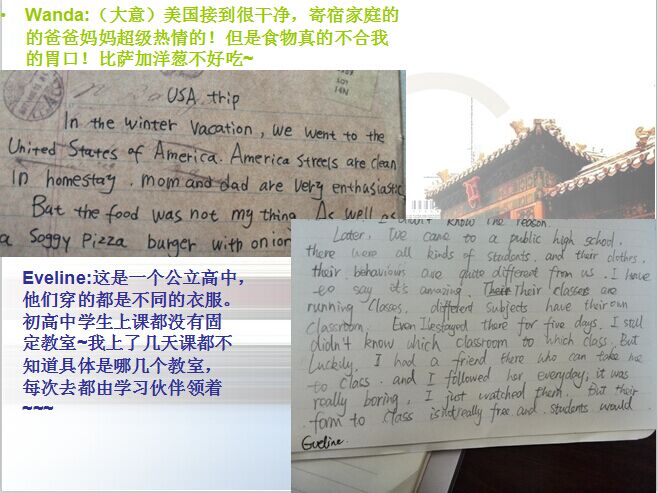 Wanda:（大意）美国接到很干净，寄宿家庭的
的爸爸妈妈超级热情的！但是食物真的不合我
的胃口！比萨加洋葱不好吃~
USA trip
In the winter vacation, we went to the
United States of America. America streets are clean
In homestay. mom and dad are very enthusiastic
But the food was not my thing As well as
a soggy pizza burger with onion
Eveline:这是一个公立高中，
他们穿的都是不同的衣服。
初高中学生上课都没有固
定教室~我上了几天课都不
知道具体是哪几个教室，
每次去都由学习伙伴领着
~~~
know the reason.
Later, We came to a public high school.
there were all kinds of students. and their clothes,
their behaviours are quite different from us. I have
to say it's amazing. Their classes are
running classes, different subjects have their own
classroom. Even I stayed there for five days, I still
didn't know which classroom to which class. But
Luckily, I had a friend there who can take me
to class. and I followed her everyday; it was
really boring, I just watched them. But their
form to class is not really free and students would
Eveline.